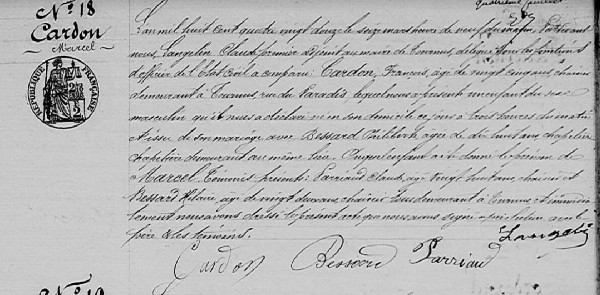 N° 18
Cardon
Marcel
RÉPUBLIQUE FRANÇAISE
L'an mil huit cent quatre vingt douze le seize mars heure de neuf du matin. Par devant
nous, Langelin Claude premier adjoint au maire de Tournus délégué dans les fonctions
d'officier de l'état Civil a comparu: Cardon, François, agé de vingt cinq ans, chaisier
demeurant à Tournus, rue du Paradis, lequel nous a présenté un enfant du sexe
masculin qu'il nous a déclaré né en son domicile ce jour à trois heures du matin
et issu de son mariage avec Bessard Philiberte agée de dix huit ans, chapelière
chapelière demeurant au même lieu. Auquel enfant a été donné le prénom de
Marcel. Témoins présents: Parriaud Claude, agé de vingt huit ans, chaisier et
Bessard Hilaire, agé de vingt deux ans, chaisier tous demeurant à Tournus et immédia
tement nous avons dressé le présent acte que nous avons signé après lecture avec le
père et les témoins.
Langelin
Cardon Bessard Parriaud
N° 19